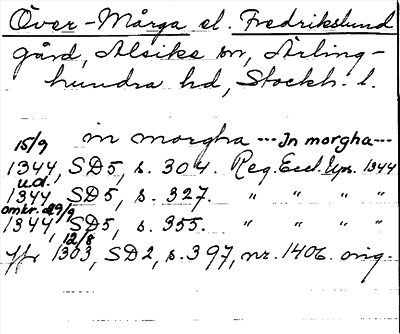 Över-Mårga el. Fredrikslund
gård, Alsike sn, Ärling-
hundra hd, Stockh. l.
in morgha --- In morgha ---
15/9
1344, SD5, s. 304. Reg. Eccl. Ups. 1344
u.d.
1344, SD5, s. 327. " " " "
omkr. 29/9
1344, SD5, s. 355. " " " "
12/8
jfr 1303, SD2, s. 397, nr. 1406. orig.